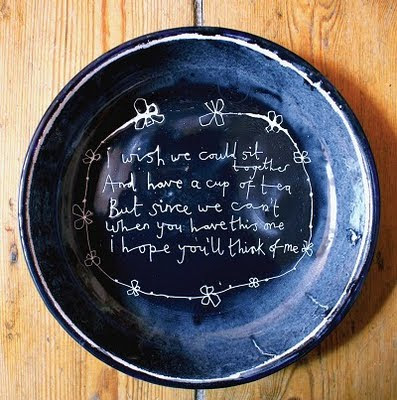 I wish we could sit
together
And have a cup of tea
But since we can't
when you have this one
I hope you'll think of me